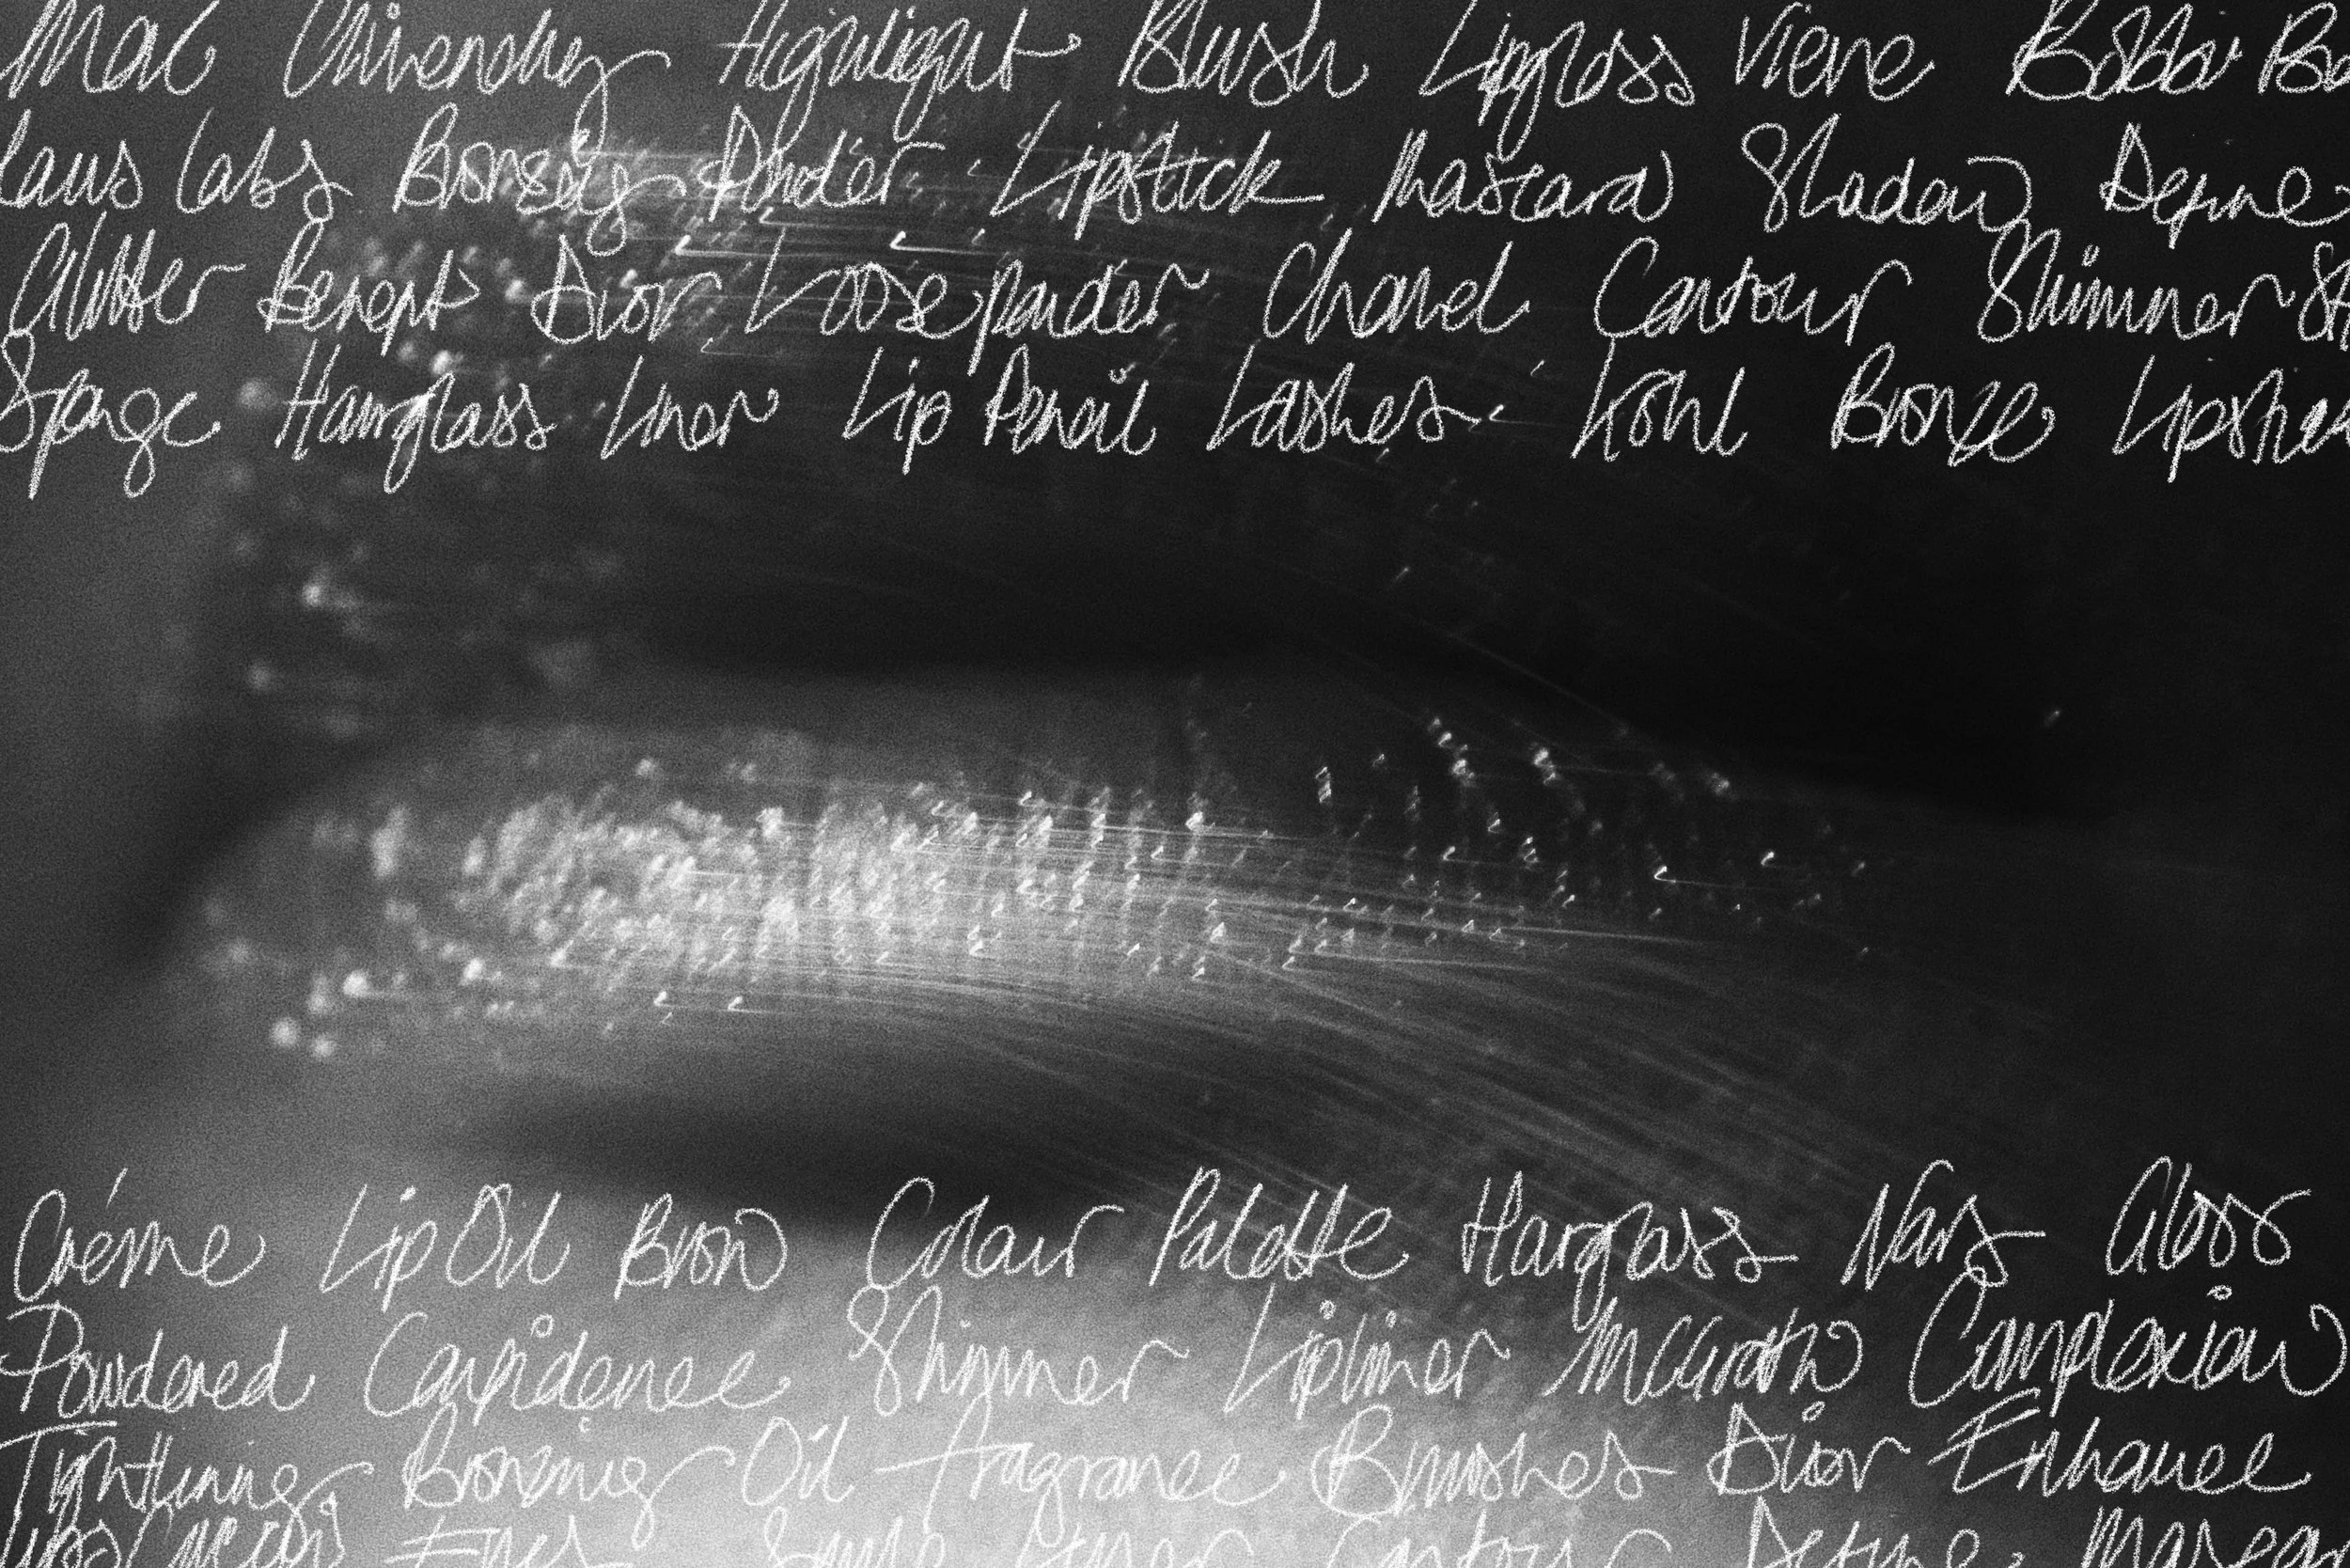 Mac Givenchy Highlight Blush Lipgloss Vieve Bobbi Bro
laus Labs Bronzey Powder Lipstick Mascara Shadow Define
Glitter Benefit Dior Loose powder Chanel Contour Shimmer
Sponge Hourglass Liner Lip Pencil Lashes Kohl Bronze
Créme Lip Oil Brow Colour Palette Hourglass Nars Gloss
Powdered Confidence Shimmer Lipliner McGrath Complexion
Tightlining Bronzing Oil fragrance Brushes Dior Enhance
Eyes Contour Define